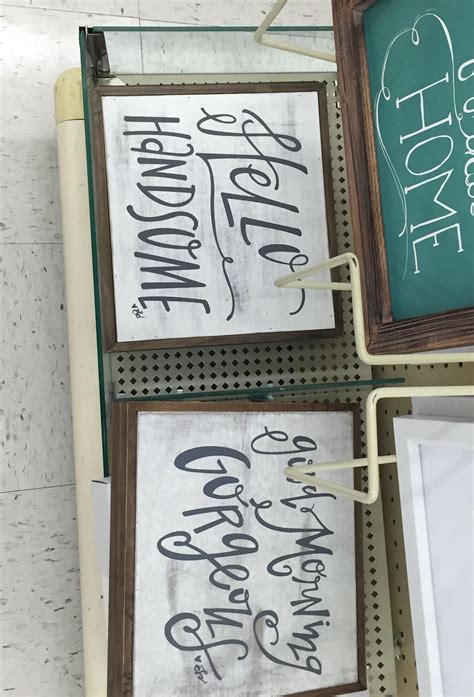 Hello
HANDSOME
good Morning
GORgeous
HOME